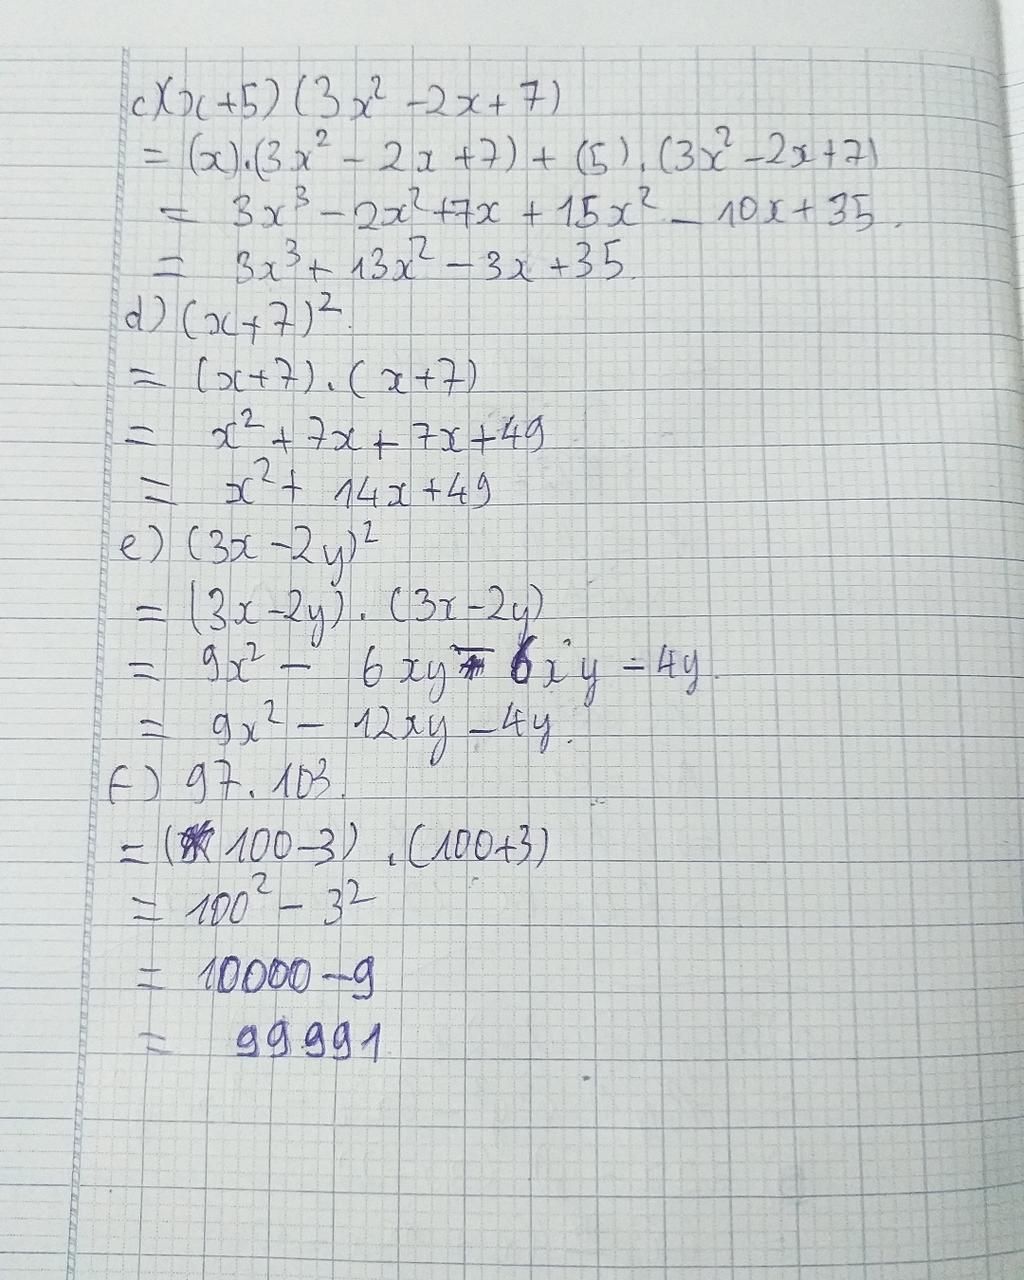 c) (x+5) (3x² -2x+7)
= (x).(3x² - 2x +7) + (5).(3x² -2x+7)
= 3x³ -2x²+7x + 15x² - 10x+35.
= 3x³+ 13x² -3x +35.
d) (x+7)².
= (x+7).(x+7)
= x² + 7x + 7x+49
= x² + 14x+49
e) (3x -2y)²
= (3x-2y).(3x-2y)
= 9x² - 6xy - 6xy - 4y.
= 9x² - 12xy -4y.
f) 97.103.
= (100-3).(100+3)
= 100² - 3²
= 10000 -9
= 99991